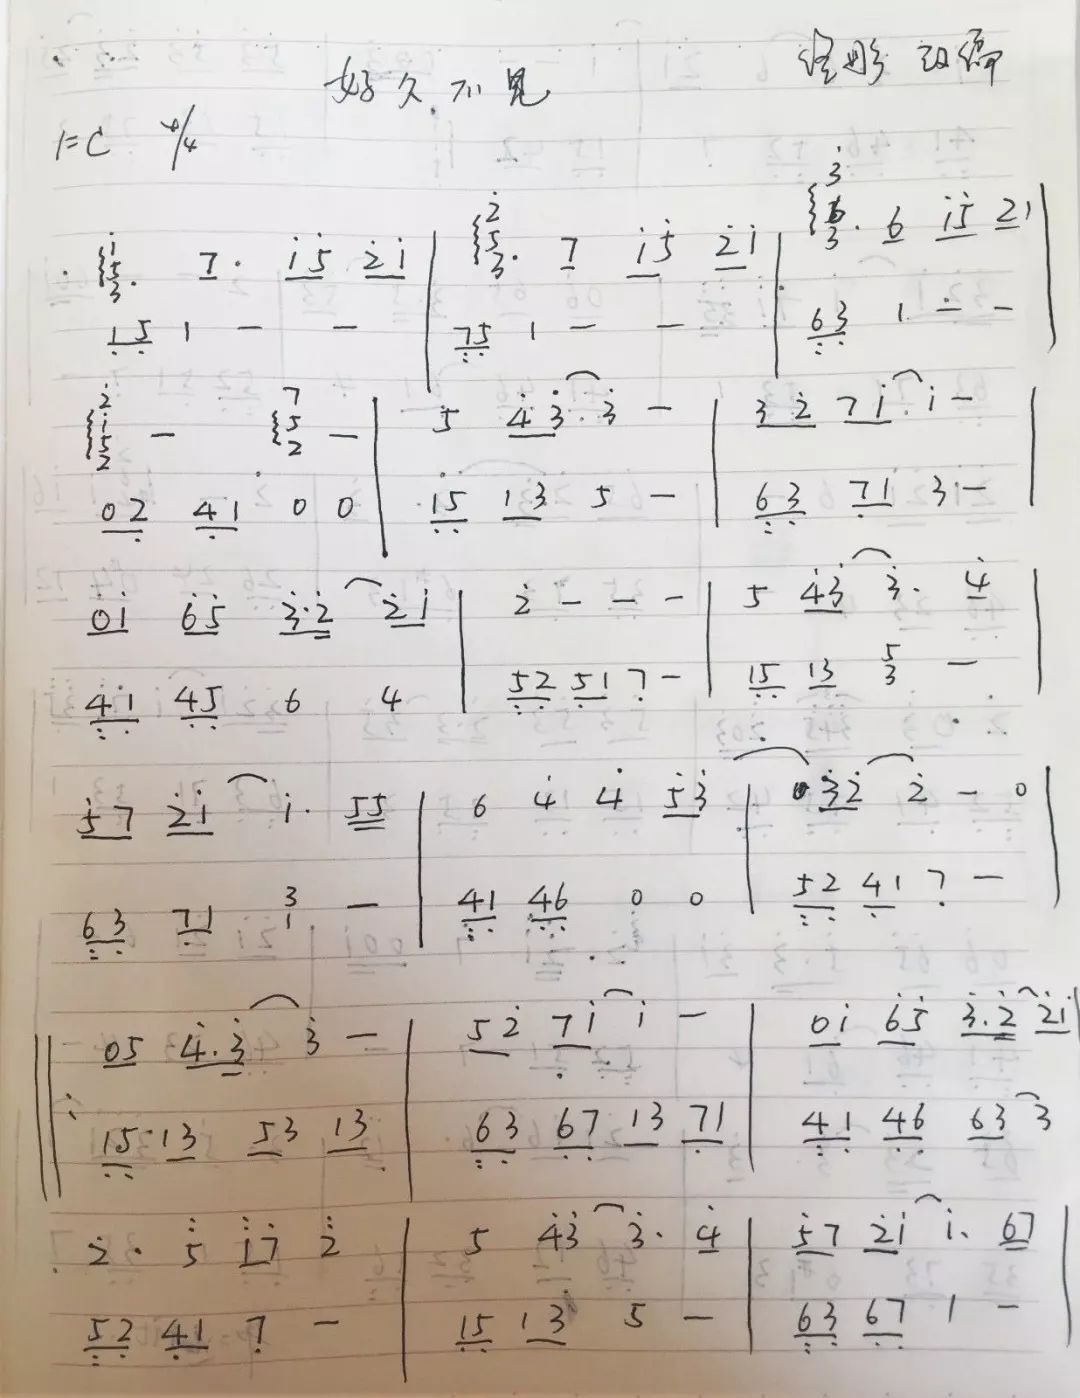 好久不见
改编
1=C 4/4
i53. 7. i5 2i | 253. 7 i5 2i | 363. 6 i5 21 |
15 1 - - | 75 1 - - | 63 1 - - |
2i52 - 752 - | 5 43. 3 - | 32 7i i - |
02 41 0 0 | 15 13 5 - | 63 71 3 - |
0i 65 3.2 2i | 2 - - - | 5 43 3. 4 |
41 45 6 4 | 52 51 7 - | 15 13 53 - |
57 2i i. 55 | 6 4 4 53 | 0 32 2 - 0 |
63 71 31 - | 41 46 0 0 | 52 41 7 - |
05 4.3 3 - | 52 7i i - | 0i 65 3.2 2i |
15 13 53 13 | 63 67 13 71 | 41 46 63 3
2. 5 i7 2 | 5 43 3. 4 | 57 2i i. 67 |
52 41 7 - | 15 13 5 - | 63 67 1 - |